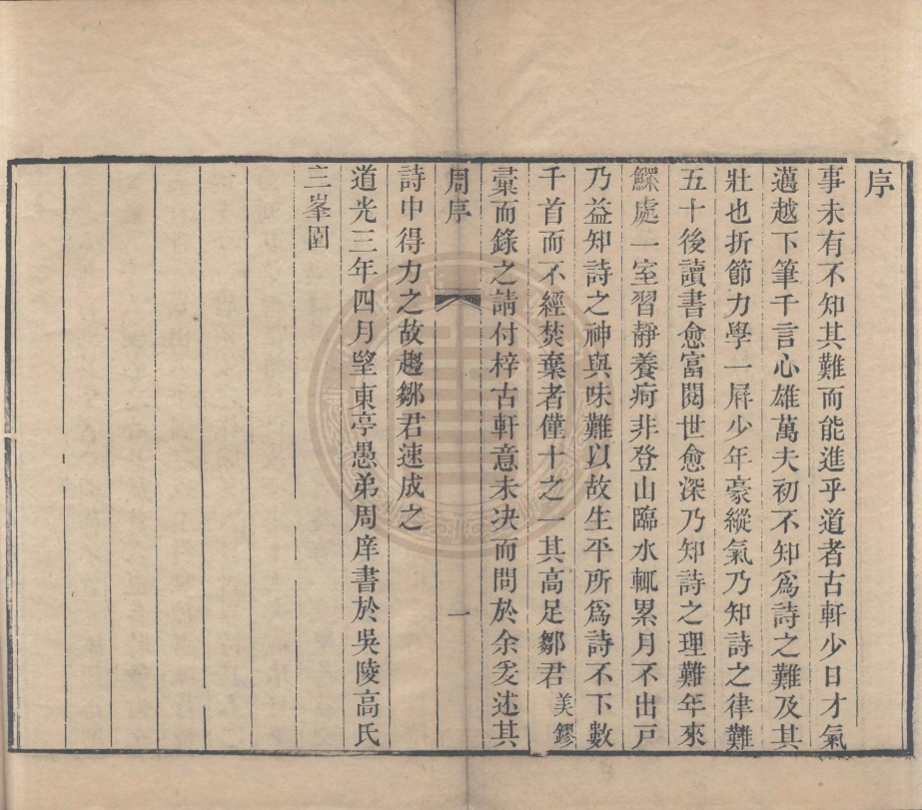 序
事未有不知其難而能進乎道者古軒少日才氣
邁越下筆千言心雄萬夫初不知爲詩之難及其
壯也折節力學一屏少年豪縱氣乃知詩之律難
五十後讀書愈富閱世愈深乃知詩之理難年來
鰥處一室習靜養疴非登山臨水輒累月不出戸
乃益知詩之神與味難以故生平所爲詩不下數
千首而不經焚棄者僅十之一其高足鄒君美鏐
彙而錄之請付梓古軒意未決而問於余爰述其
周序 一
詩中得力之故趣鄒君速成之
道光三年四月望東亭愚弟周庠書於吳陵高氏
三峯園